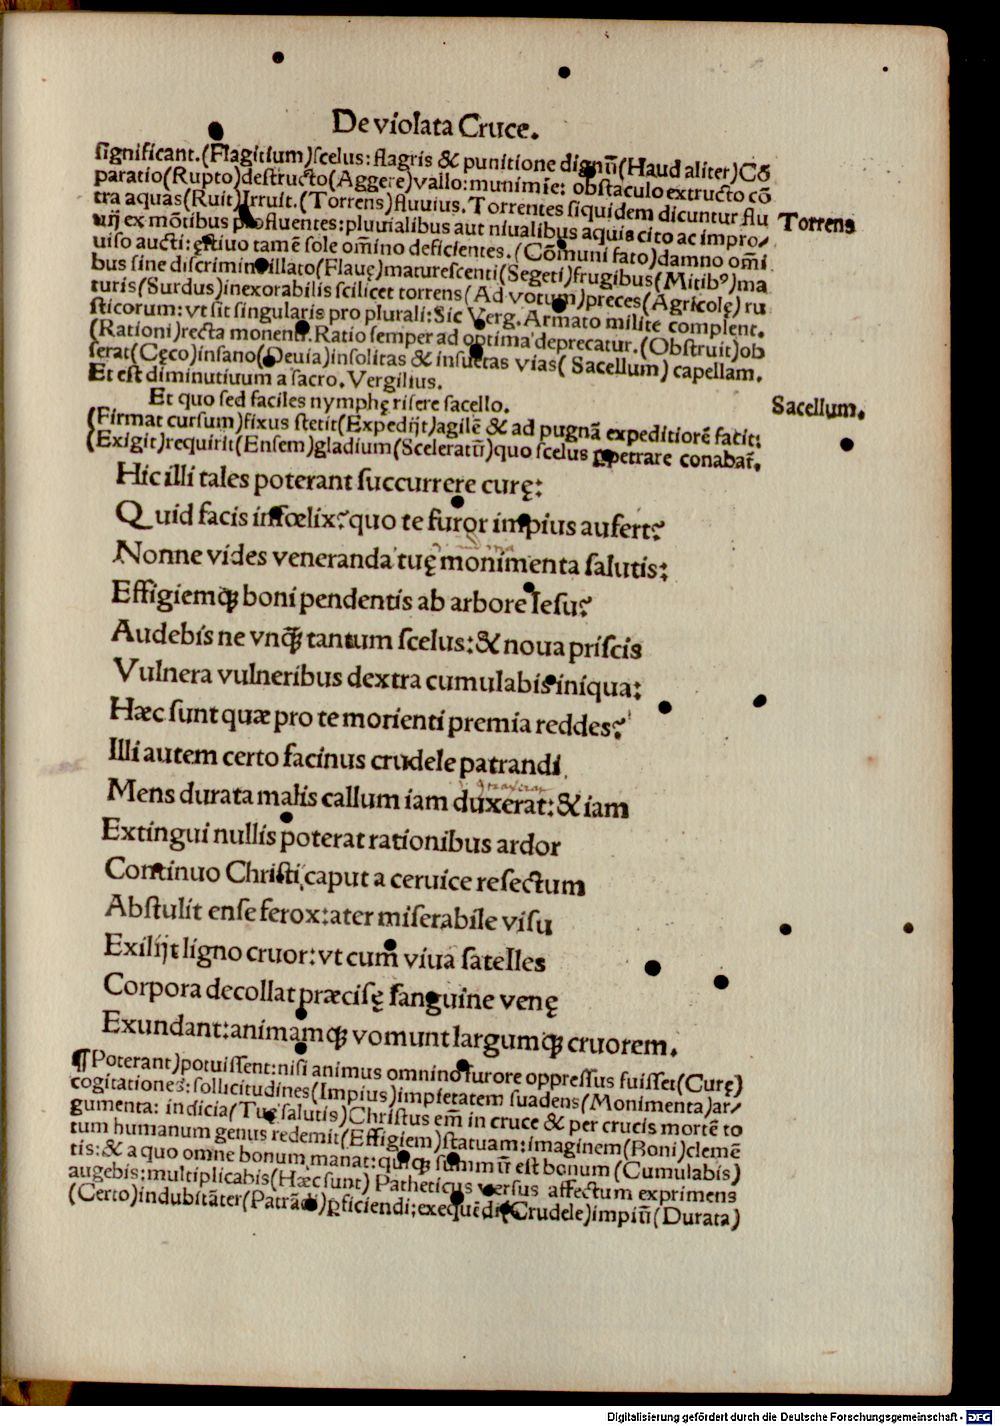 De violata Cruce.
significant.(Flagitium)scelus: flagris & punitione dignũ(Haud aliter)Cõ
paratio(Rupto)destructo(Aggere)vallo: munimiẽ: obstaculo extructo cõ
tra aquas(Ruit)Irruit.(Torrens)fluuius. Torrentes siquidem dicuntur flu
Torrens
uij ex mõtibus profluentes: pluuialibus aut niualibus aquis cito ac impro/
uiso aucti: ęstiuo tamẽ sole om̃ino deficientes.(Cõmuni fato)damno om̃i
bus sine discrimin illato(Flauę)maturescenti(Segeti)frugibus(Mitibꝰ)ma
turis(Surdus)inexorabilis scilicet torrens(Ad votum)preces(Agricolę) ru
sticorum: vt sit singularis pro plurali: Sic Verg. Armato milite complent.
(Rationi)recta monenti. Ratio semper ad optima deprecatur.(Obstruit)ob
serat(Cęco)insano(Deuia)insolitas & insuetas vias( Sacellum) capellam.
Et est diminutiuum a sacro. Vergilius.
Et quo sed faciles nymphę risere sacello.
Sacellum.
(Firmat cursum)fixus stetit(Expedijt)agilẽ & ad pugnã expeditiorẽ facit:
(Exigit)requirit(Ensem)gladium(Sceleratũ)quo scelus ꝑpetrare conabat̃.
Hic illi tales poterant succurrere curę:
Quid facis infœlix? quo te furor impius aufert?
Nonne vides veneranda tuę monimenta salutis:
Effigiemqꝫ boni pendentis ab arbore Iesu?
Audebis ne vnqꝫ̃ tantum scelus: & noua priscis
Vulnera vulneribus dextra cumulabis iniqua:
Hæc sunt quæ pro te morienti premia reddes?
Illi autem certo facinus crudele patrandi
Mens durata malis callum iam duxerat: & iam
Extingui nullis poterat rationibus ardor
Continuo Christi caput a ceruice resectum
Abstulit ense ferox: ater miserabile visu
Exilijt ligno cruor: vt cum viua satelles
Corpora decollat præcisę sanguine venę
Exundant: animamqꝫ vomunt largumqꝫ cruorem.
¶Poterant)potuissent: nisi animus omnino furore oppressus fuisset(Curę)
cogitationes: sollicitudines(Impius)impietatem suadens(Monimenta)ar/
gumenta: indicia(Tuę salutis)Christus em̃ in cruce & per crucis mortẽ to
tum humanum genus redemit(Effigiem)statuam: imaginem(Boni)clemẽ
tis: & a quo omne bonum manat: quiqꝫ summũ est bonum (Cumulabis)
augebis: multiplicabis(Hæc sunt) Patheticus versus affectum exprimens
(Certo)indubitãter(Patrãdi)ꝑficiendi: exequẽdi(Crudele)impiũ(Durata)
Digitalisierung gefördert durch die Deutsche Forschungsgemeinschaft - DFG